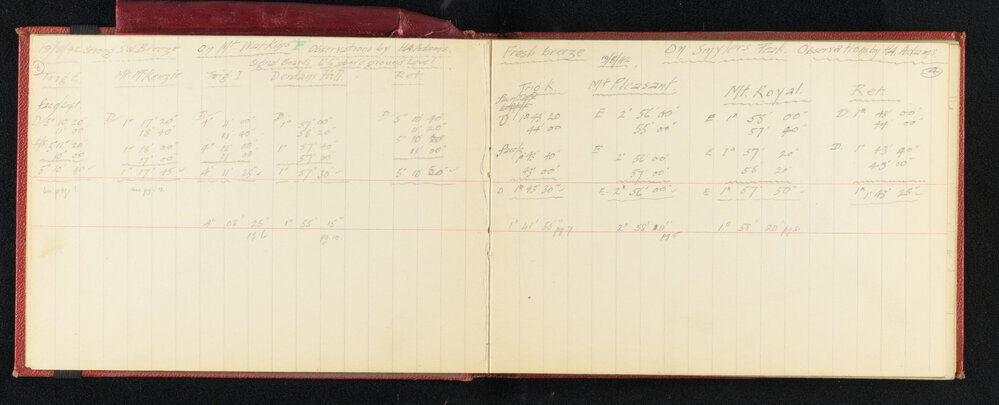 19/8/42 Strong S.W. Breeze On Mt Watkins Observations by H.A. Adams.
Signal Boards 6'6 above ground level
Trig E Mt McKenzie Trig I Derdans Hill Ret.
Face Left
D 5° 10' 20" D 1° 17' 20" D 4° 11' 00" D 1° 57' 00" D 5° 10' 40"
11' 00" 18' 40" 11' 40" 58' 20" 11' 20"
5° 11' 20" 1° 16' 00" 4° 12' 00" 1° 57' 40" 5° 10' 20"
10' 00" 17' 00" 11' 00" 57' 00" 11' 00"
5° 10' 40" 1° 17' 45" 4° 11' 25" 1° 57' 30" 5° 10' 50"
pg. 2
4° 08' 25" 1° 55' 15"
pg 6 pg. 10
Fresh breeze 19/8/42 On Smylers Peak. Observations by H.A. Adams
4
Trig K Mt Pleasant Mt. Royal. Ret.
D 1° 43' 20 E 2° 56' 00" E 1° 58' 00" D. 1° 43' 00"
44' 00" 55' 00" 57' 40" 44' 00"
1° 43' 40" E 2° 56' 00" E 1° 57' 20" D. 1° 43' 40"
43' 00" 57' 00" 58' 20" 43' 00"
D 1° 43' 30" E. 2° 56' 00" E 1° 57' 50" 1° 43' 25"
1° 41' 55" pg 7 2° 58' pg 5 1° 58' 20" pg 8